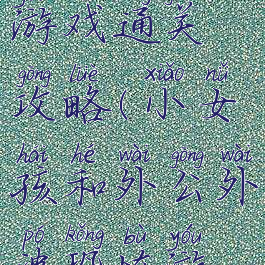 游戏通关
gōng lüè xiǎo nǚ
攻略(小女
hái hé wài gōng wài
孩和外公外
pó kǒng bù yóu
婆恐怖游